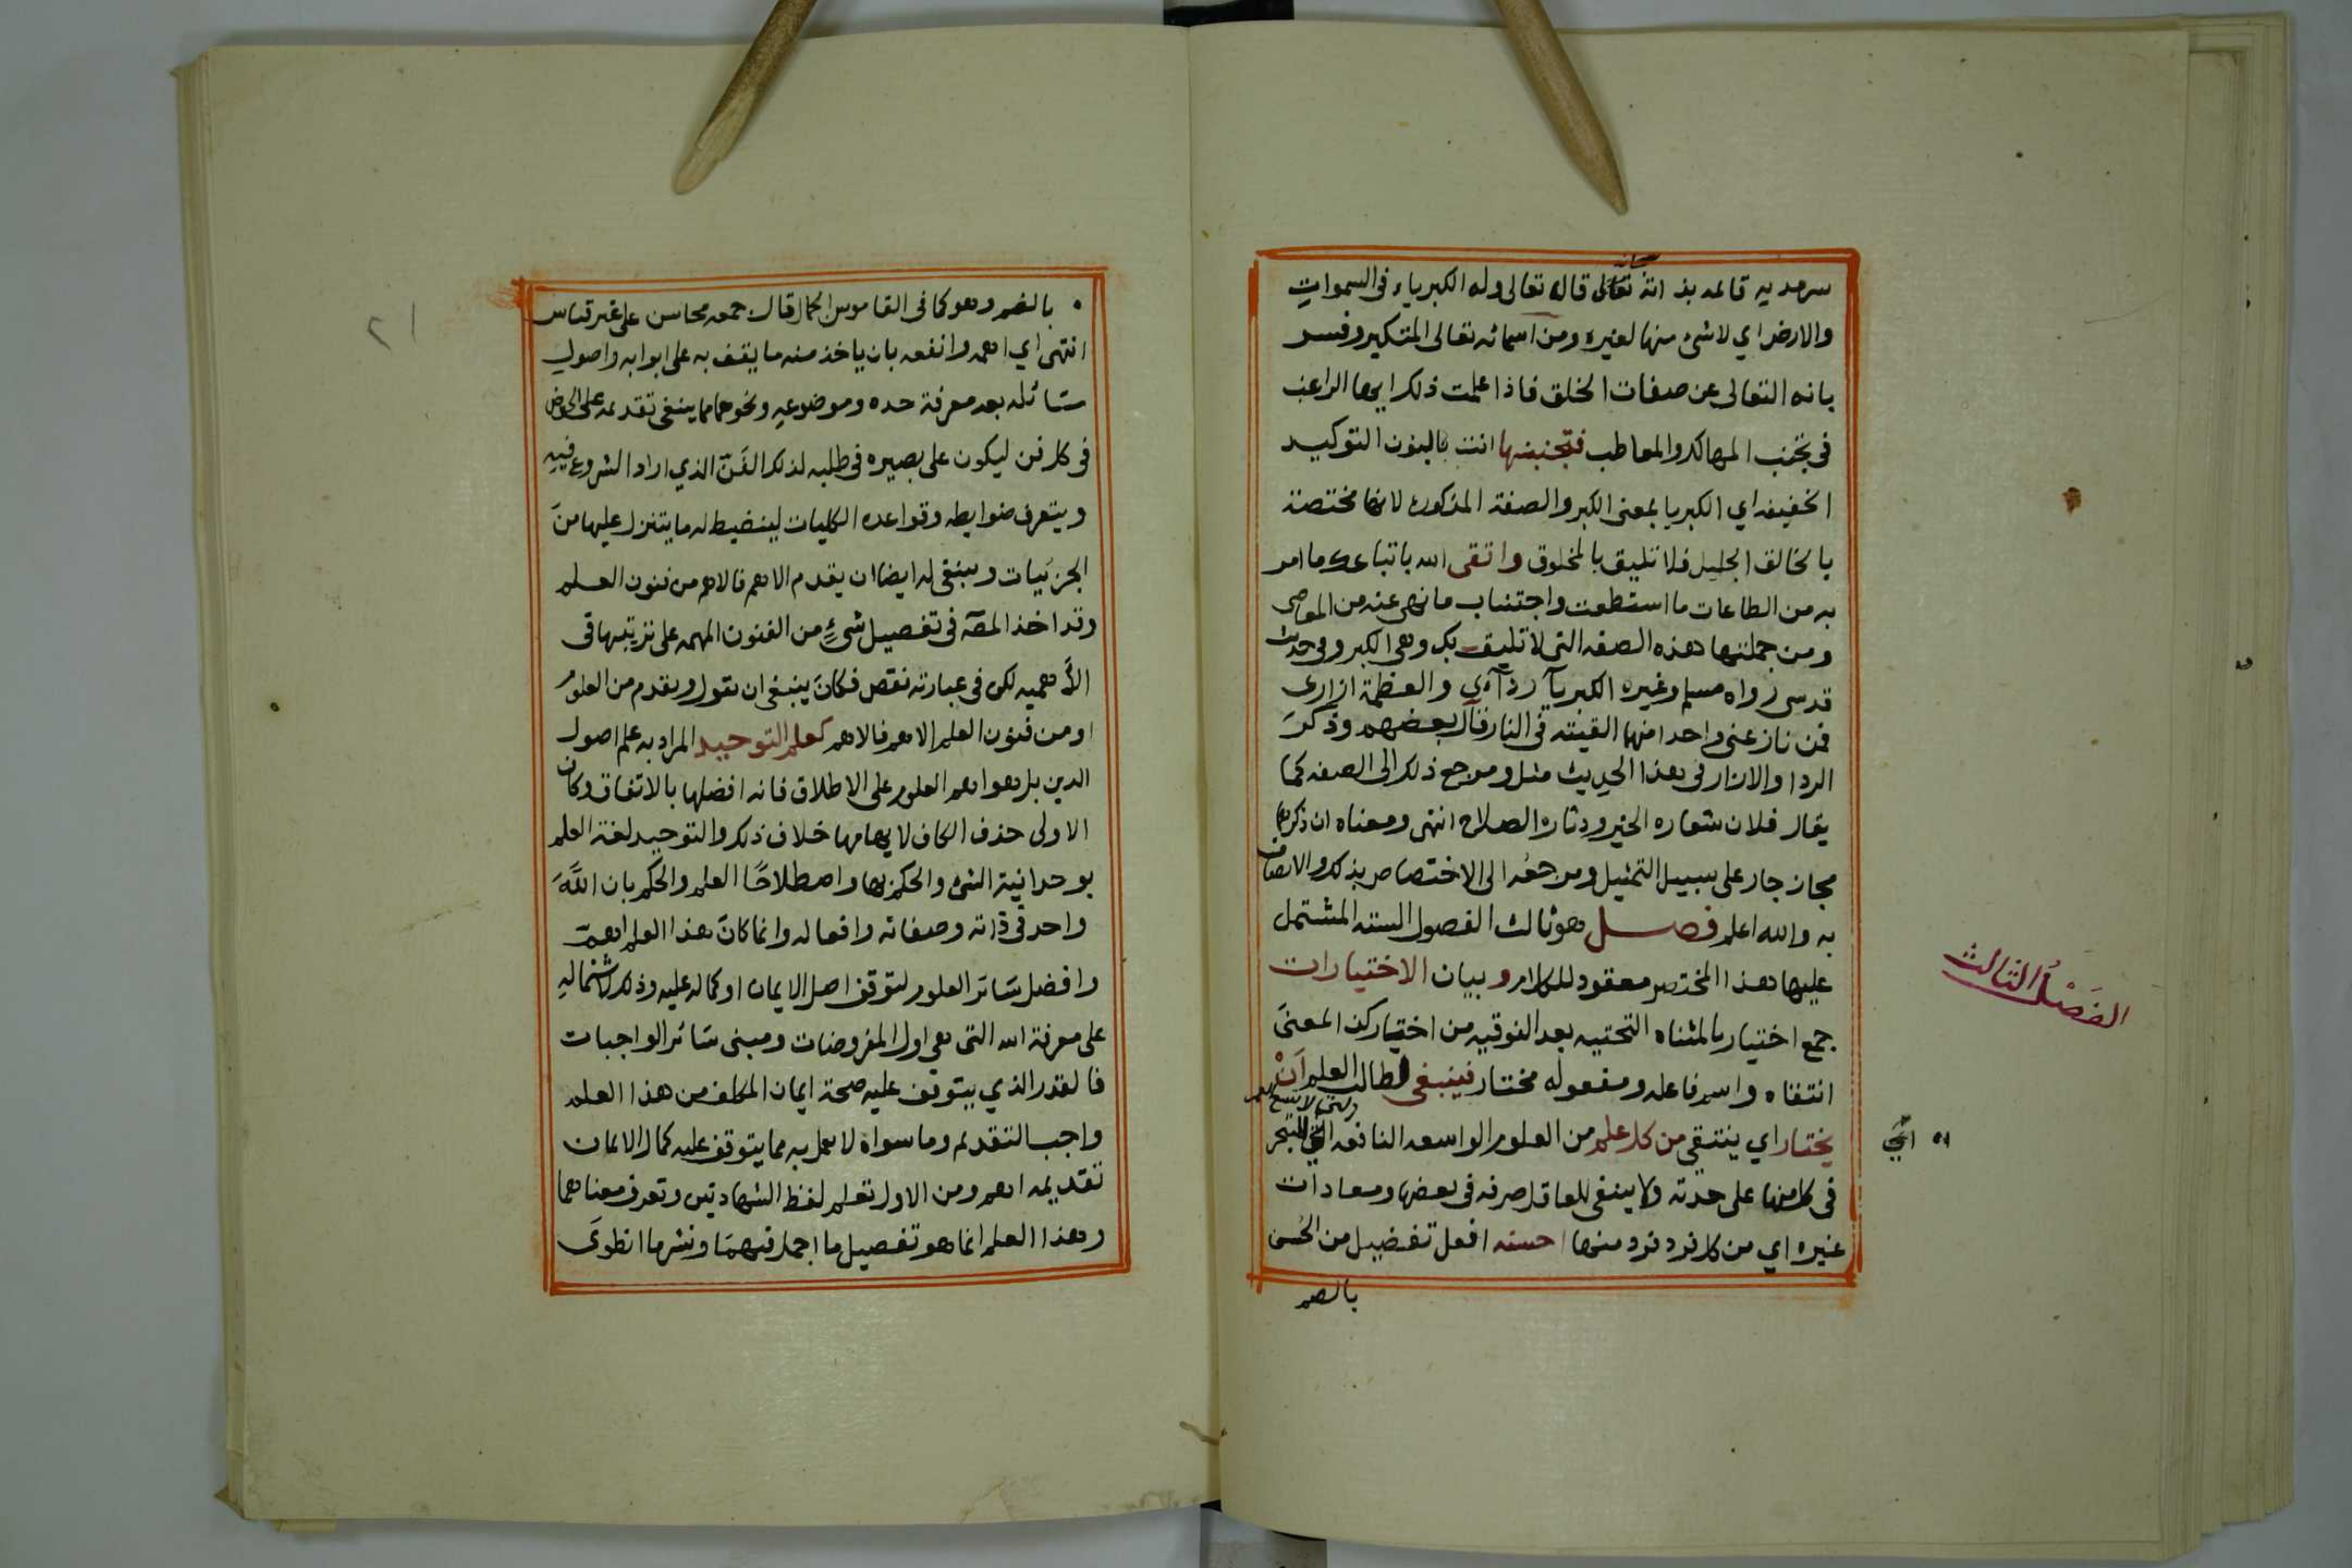 سرمديه قائمه بذاته تعالى قال تعالى وله الكبرياء في السموات
سبحانه
والارض اي لا شئ منها لغيره ومن اسمائه تعالى المتكبر وفسر
بانه المتعالى عن صفات الخلق فاذا علمت ذلك ايها الراغب
في تجنب المهالك والمعاطب فتجنبنها انت بالنون التوكيد
الخفيفه اي الكبريا بمعنى الكبر والصفة المذكوره لانها مختصة
بالخالق الجليل فلا تليق بالمخلوق واتقى الله باتباعك ما امر
به من الطاعات ما استطعت واجتناب ما نهى عنه من المعاصي
ومن جملتها هذه الصفه التي لا تليق بك وهي الكبر وفي حديث
قدسي رواه مسلم وغيره الكبرياء ردآءي والعظمة ازاري
فمن نازعني واحدا منهما القيته في النار قال بعضهم وذكر
الردا والازار في هذا الحديث مثل ومرجع ذلك الى الصفه كما
يقال فلان شعاره الخير ودثاره الصلاح انتهى ومعناه ان ذكرها
مجاز جار على سبيل التمثيل ومرجعه الى الاختصاص بذلك والاتصاف
به والله اعلم فصل هو ثالث الفصول السته المشتمل
الفصل الثالث
عليها هذا المختصر معقود للكلام وبيان الاختيارات
جمع اختيار بالمثناه التحتيه بعد الفوقيه من اختيار كذا لمعنى
انتقاه واسم فاعله ومفعوله مختار فينبغي لطالب العلم ان
يختار اي ينتقى من كل علم من العلوم الواسعه النافعه التي للتبحر
في كل منها على حدته ولا ينبغي للعاقل صرفه في بعضها ومعادات
غيره اي من كل فرد فرد منها احسنه افعل تفضيل من الحسن
بالضم
٢١
بالضم وهو كما في القاموس الجمال قال جمعه محاسن على غير قياس
انتهى اي اهمه وانفعه بان ياخذ منه ما يقف به على ابوابه واصول
مسائله بعد معرفة حده وموضوعه ونحوهما مما ينبغي تقديمه على الخوض
في كل فن ليكون على بصيره في طلبه لذلك الفن الذي اراد الشروع فيه
ويتعرف ضوابطه وقواعده الكليات لينضبط له ما يتنزل عليها من
الجزئيات وينبغي له ايضا ان يقدم الاهم فالاهم من فنون العلم
وقد اخذ المصه في تفصيل شئ من الفنون المهمه على ترتيبها في
الأهميه لكن في عبارته نقص فكان ينبغي ان يقول ويقدم من العلوم
او من فنون العلم الاهم فالاهم كعلم التوحيد المراد به علم اصول
الدين بل هو اهم العلوم على الاطلاق فانه افضلها بالاتفاق وكان
الاولى حذف الكاف لايهامها خلاف ذلك والتوحيد لغة العلم
بوحدانية الشئ والحكم بها واصطلاحًا العلم والحكم بان الله
واحد في ذاته وصفاته وافعاله وانما كان هذا العلم اهم
وافضل سائر العلوم لتوقف اصل الايمان او كماله عليه وذلك لاشتماله
على معرفة الله التي هي اول المفروضات ومبنى سائر الواجبات
فالقدر الذي يتوقف عليه صحة ايمان المكلف من هذا العلم
واجب التقديم وما سواه لا عمل به مما يتوقف عليه كمال الايمان
تقديمه اهم ومن الاول تعلم لفظ الشهادتين وتعرف معناهما
وهذا العلم انما هو تفصيل ما اجمل فيهما ونشر ما انطوى